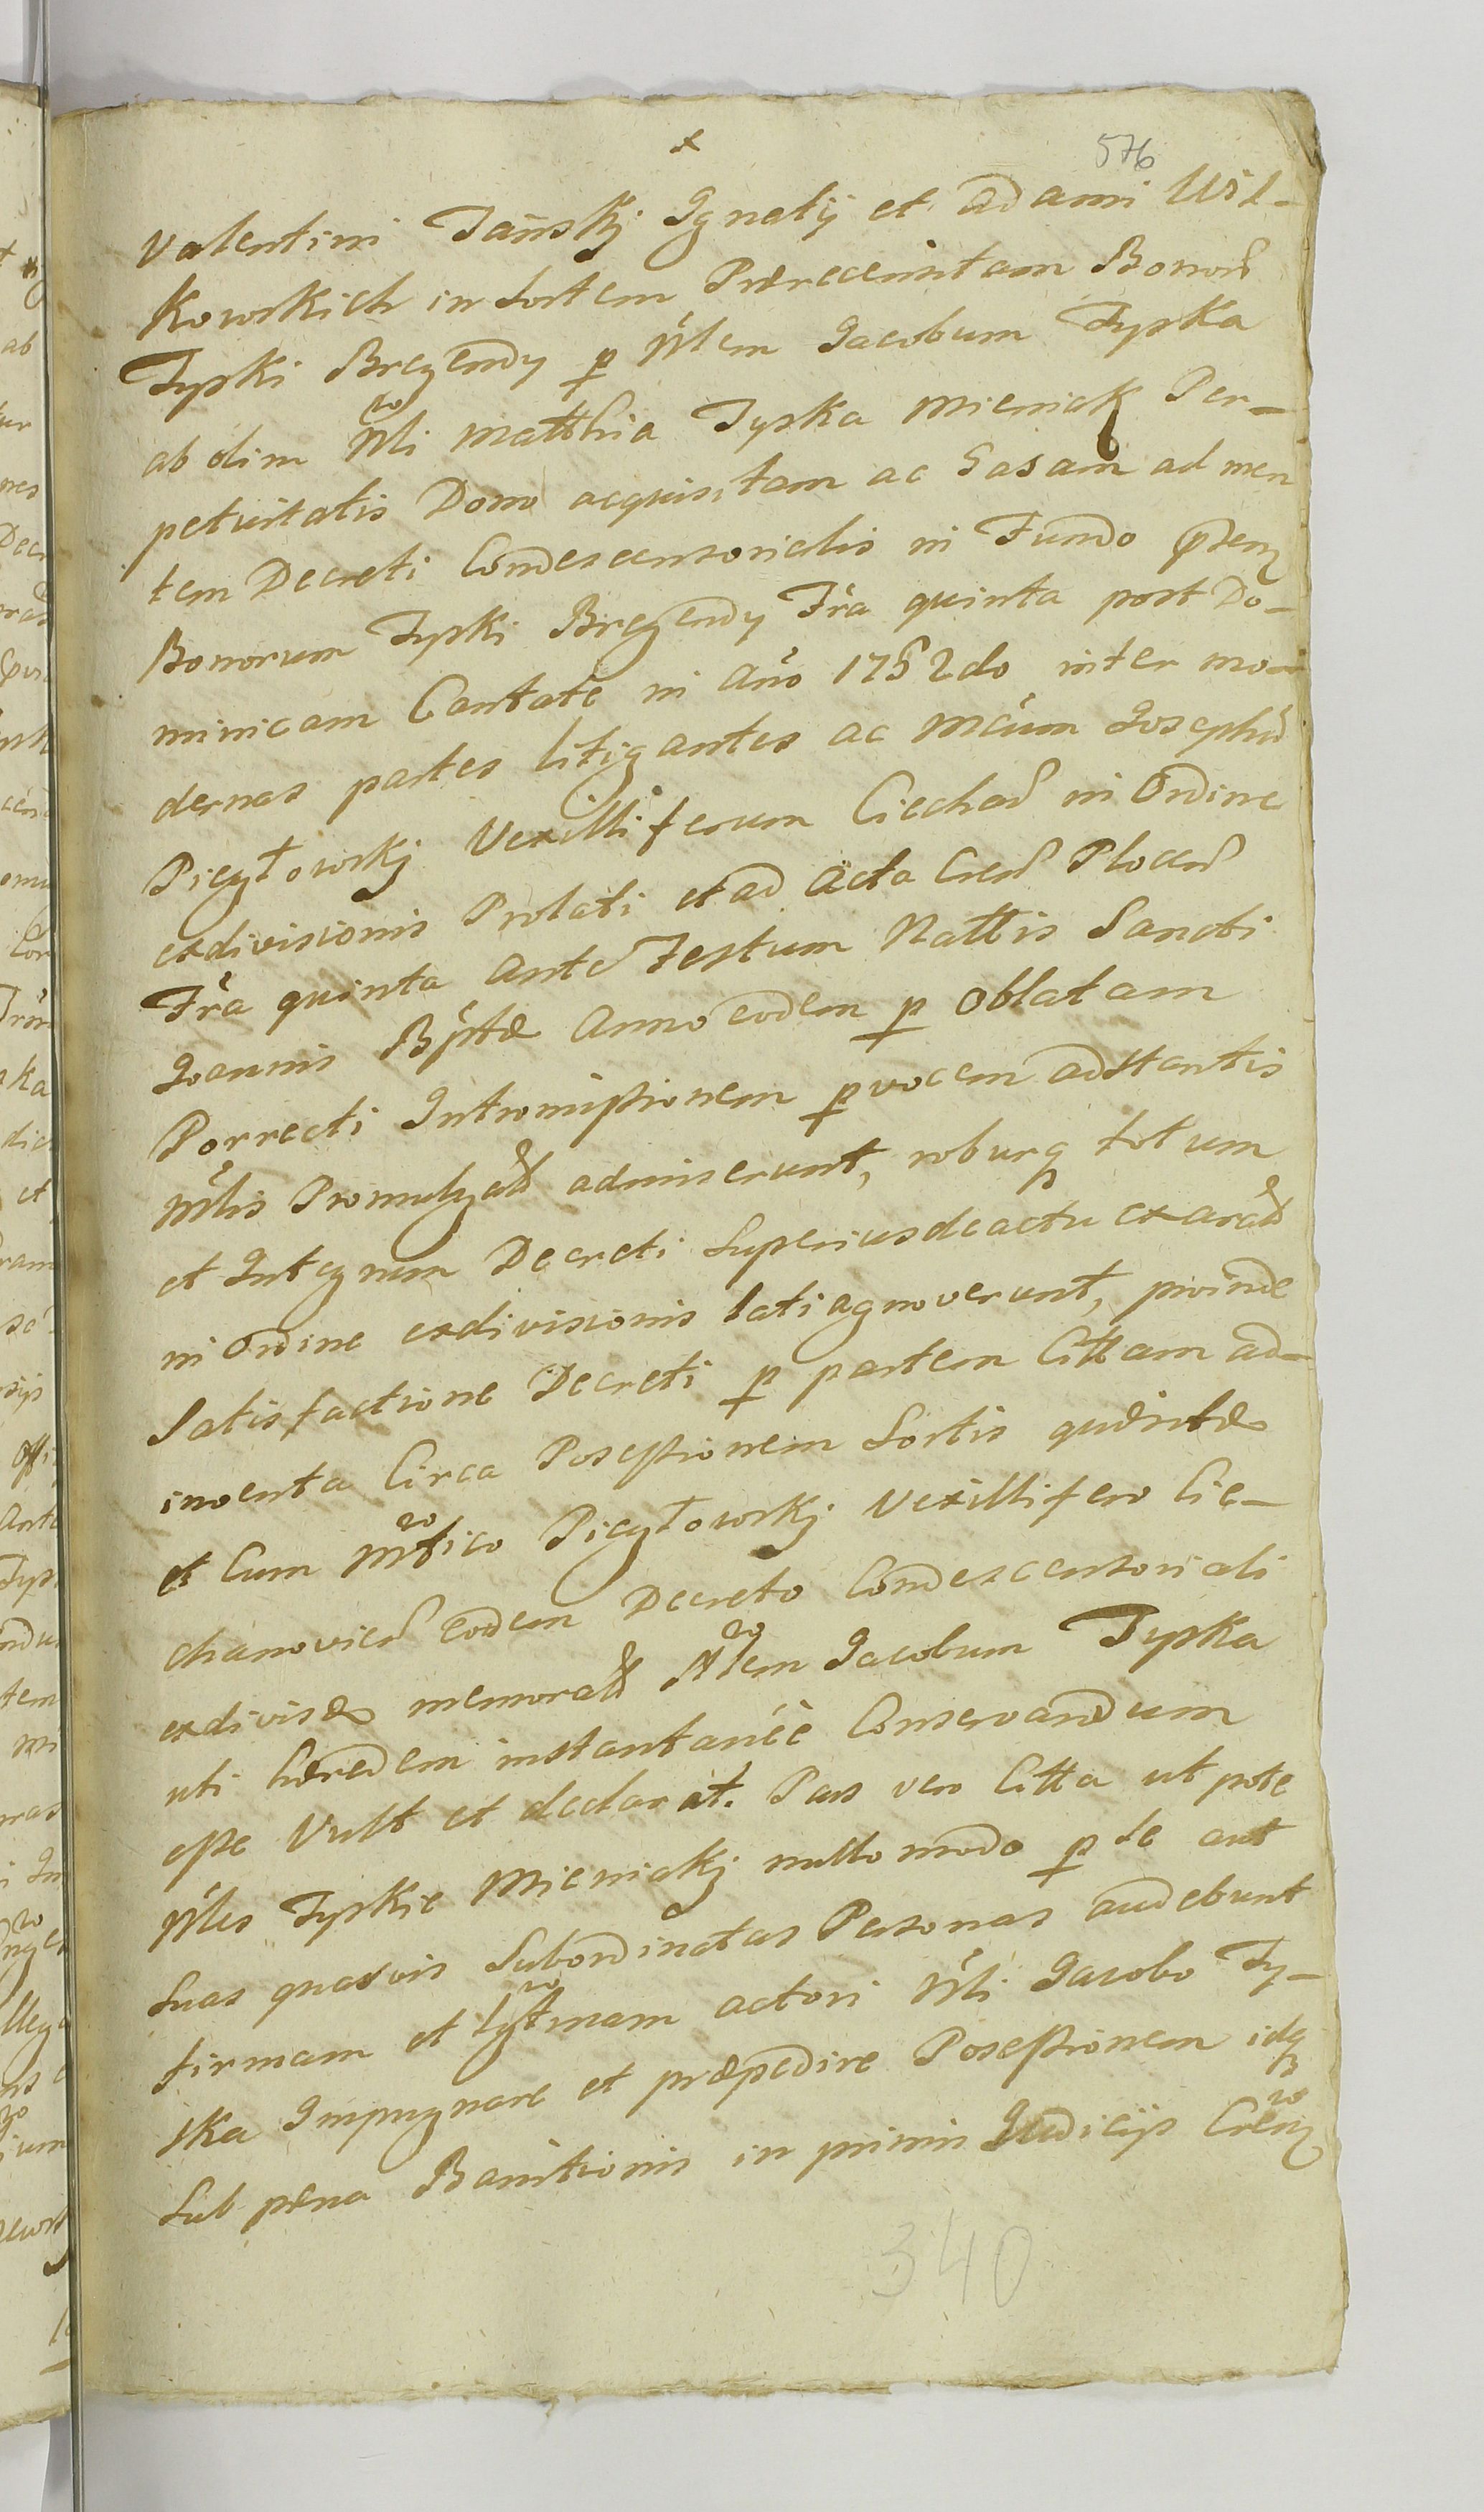 576
Valentini Tański Ignatij et Adami Wil-
kowskich in Sortem Prærecensitam Bonor
Tyski Bregendy p Nlem Jacobum Tyska
ab olim Nli Matthia Tyska Mieniak Per-
petuitatis Dono acquisitam ac Casam ad men
tem Decreti Condescensorialis in Fundo
Bonorum Tyski Bregendy Fra quinta post Do-
minicam Cantate in Ano 1752do inter mo-
dernas partes litigantes ac Mcum Josephu
Picytowskj Vexilliferum Ciechan in Ordine
exdivisionis Prolati et ad Acta Cren Plocen
Fra quinta Ante Festum Nattis Sancti
Joannis Bptæ Anno eodem p Oblatam
Porrecti Intromissionem p vocem adstantis
Mlis Promulgatt admiserunt, roburq totum
et Integrum Decreti Superius de actu exaratt
in Ordine exdivisionis lati agnoverunt, proinde
Satisfactione Decreti p partem Cittam ad-
inventa Circa Possessionem Sortis quæsitæ
et Cum Mtico Picytowskj Vexillifero Cie-
chanovien eodem Decreto Condescensoriali
exdivisæ memoratt Nlem Jacobum Tyska
uti hæredem instantanèe Conservandum
esse Vult et declarat. Pars vero Citta ut pote
Nles Tyskie Mieniakj nullo modo p se aut
Suas quasvis Subordinatas Personas audebunt
firmam et lgtmam actori Nli Jacobo Ty-
ska Impugnare et præpedire Possessionem idq
Sub pæna Banitionis in primis Judicijs Cren
340